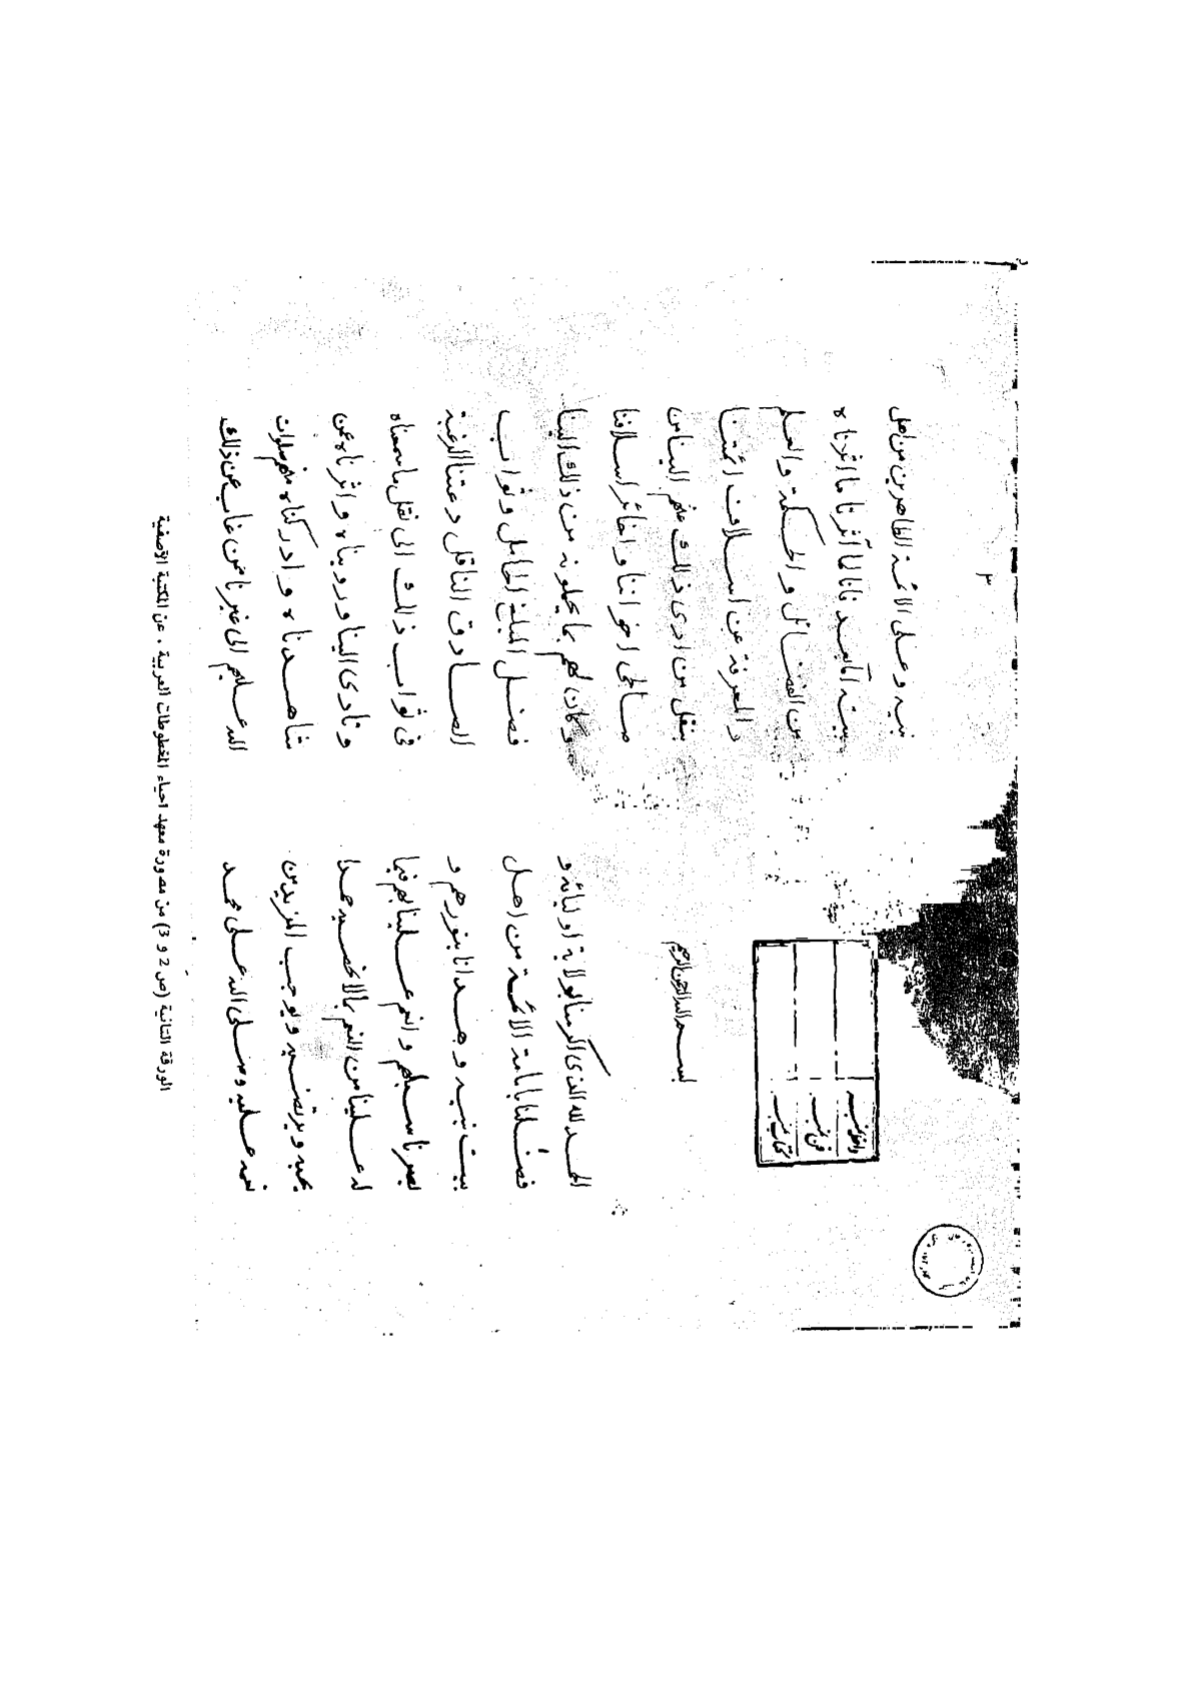 داخله نمبر
فن نمبر
كتاب نمبر
بسم الله الرحمن الرحيم
الحمد لله الذى اكرمنا بولاية اوليائه و
فضّلنا بامامة الائمة من اهل
بيت نبيه و هدانا بنورهم و
بصرنا سبلهم و انعم علينا بهم فيما
له علينا من النعم بما لا نحصيه حمدا
يحبه و يرتضيه و يوجب المزيد من
نعمه عليه و صلى الله على محمد
٣
نبيه و على الائمة الطاهرين من اهل
بيته اما بعد فانا لما آثرنا ما اثرناه
من الفضائل و الحكمة و العلم
و المعرفة عن اسلاف ائمتنا
بنقل من ادى ذلك عنهم الينا من
صالحى اخواننا و اخائر اسلافنا
و كان لهم بما يحملونه من ذلك الينا
فضل المبلغ الحامل و ثواب
الصادق الناقل دعتنا الرغبة
فى ثواب ذلك الى نقل ما سمعناه
و تادى الينا و رويناه و اثرناه عمن
شاهدناه و ادركناه منهم صلوات
الله عليهم الى غيرنا ممن غاب عن ذلك
الورقة الثانية (ص 2 و 3) من مصورة معهد احياء المخطوطات العربية ، عن المكتبة الآصفية